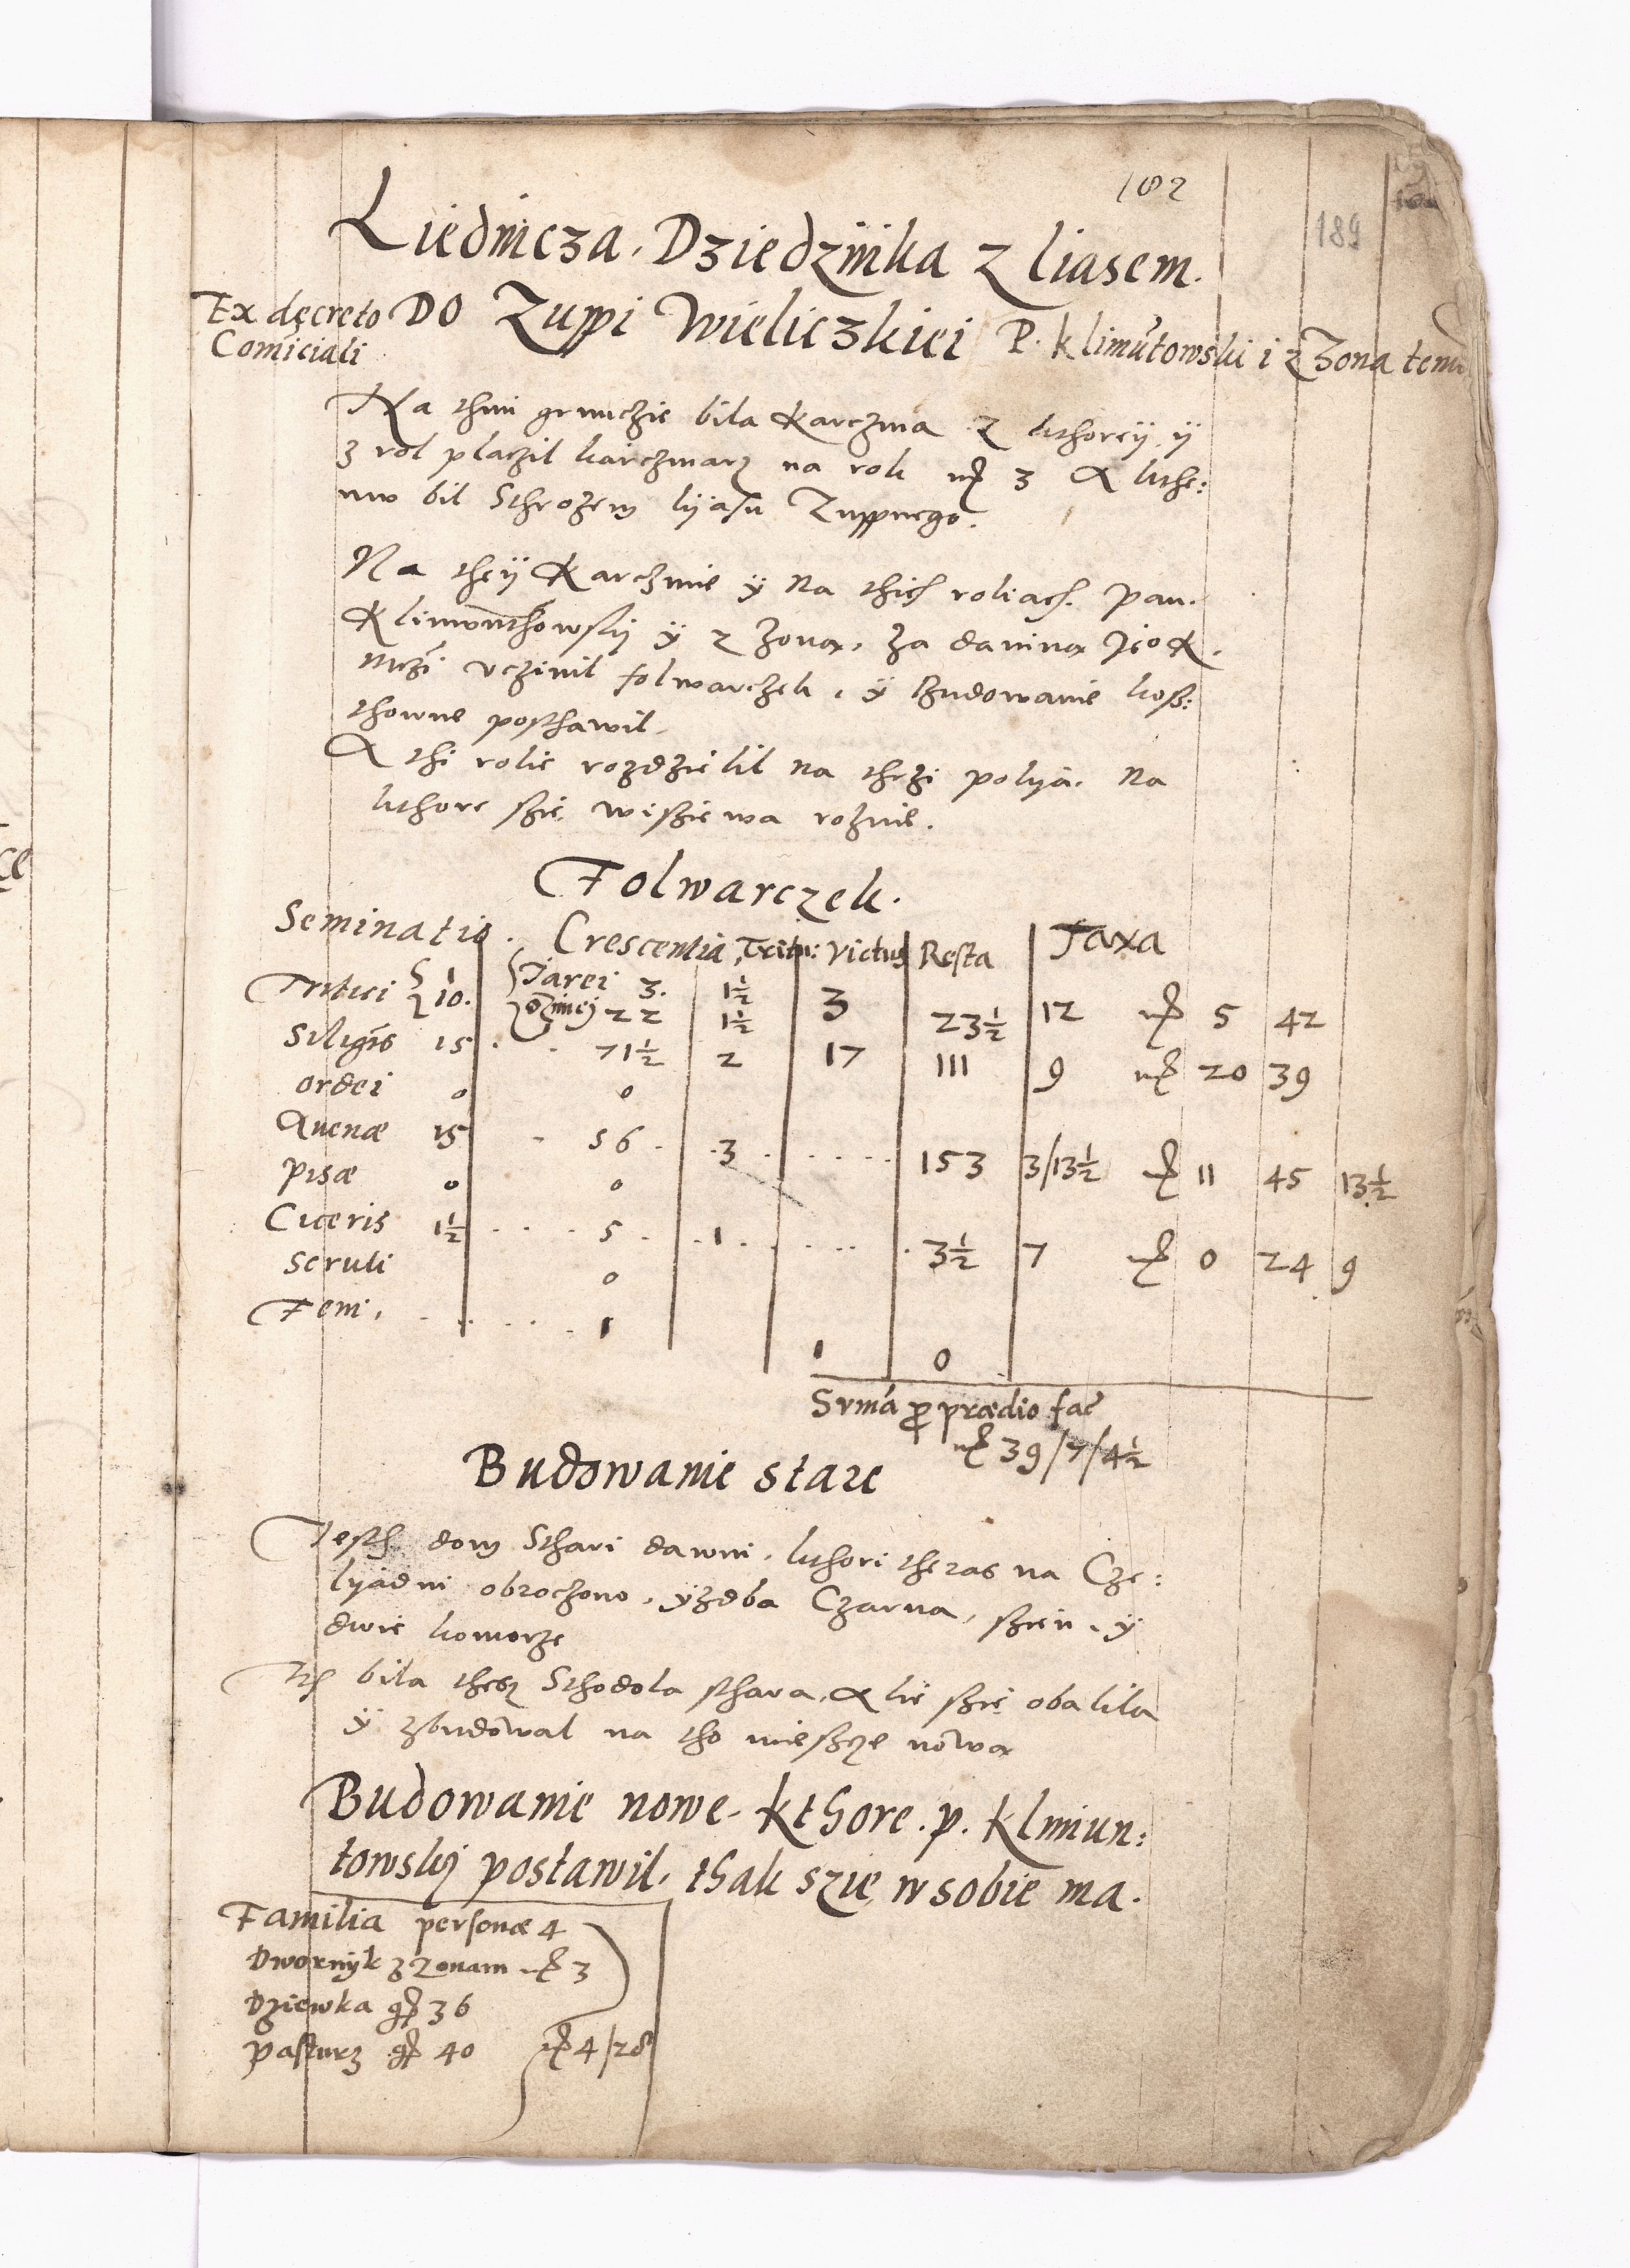 102
189
Liednicza, Dziedzinka z liasem.
Ex decreto Comiciali
DO Zuppi Wieliczkiei P. klimūtowski i z Zona tenū
Na thim grunczie bila Karczma z kthoreÿ ÿ
z rol placzil karczmarz na rok mℓ 3 A kthe:
mw bil Schrożem lÿasu Zuppnego.
Na theÿ Karczmie ÿ na thich roliach. pan.
Klimvnthowskÿ ÿ z żona, za danina Jeo K.
Mczi vczinil folwarczek, ÿ Budowanie kosz:
thowne posthawil.
A thi rolie rozdzielil na thrzi polÿa. Na
kthore szie wisziewa roznie.
Folwarczek.
Seminatio. Crescentia, Tritu: Victus Resta Taxa
Tritici 1 10. Jarei 3. oziniej 22 1½ 1½ 3 23½ 12 mℓ 5 42
Siligīs 15 71½ 2 17 111 9 mℓ 20 39
ordei 0 0
Auenæ 15 56 3 153 3/13½ mℓ 11 45 13½
pisæ 0 0
Ciceris 1½ 5 1 3½ 7 mℓ 0 24 9
seruli 0
Feni, 1 1 0
Svmā p prædio fac
mℓ 39/7/4½
Budowanie stare
Jesth dom Sthari dawni, kthori theras na Cze:
lyadni obroczono, ÿzdba Czarna, szien, ÿ
dwie komorze
Ith bila thesz Sthodola sthara, Alie szie obalila
ÿ zbudowal na tho miescze nowa
Budowanie nowe. kthore. p. klimun:
towskj postawil, thak szie w sobie ma.
Familia personæ 4
Dwornyk z zonam mℓ 3
Dziewka gℓ 36
pasturz gℓ 40 mℓ 4/28